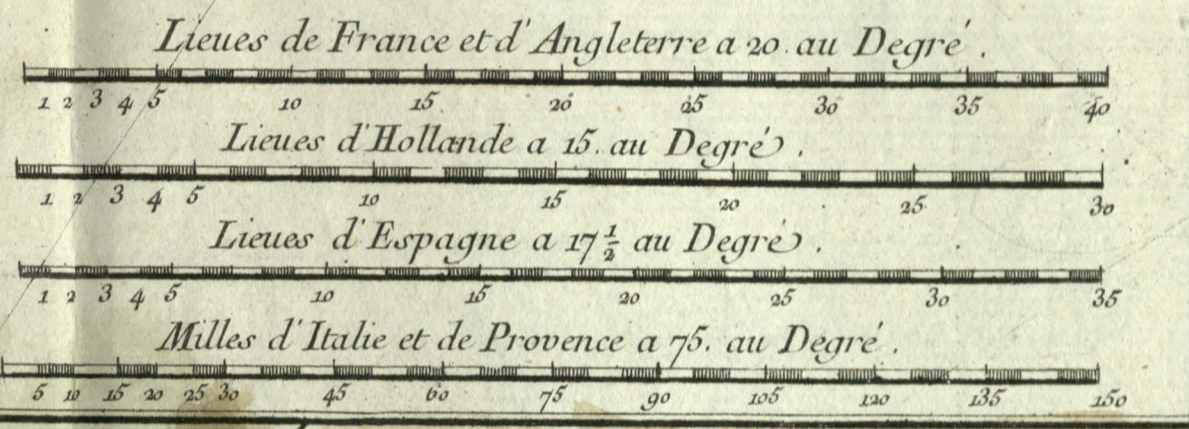 Lieues de France et d'Angleterre a 20. au Degré.
1 2 3 4 5 10 15 20 25 30 35 40
Lieues d'Hollande a 15. au Degré.
1 2 3 4 5 10 15 20 25 30
Lieues d'Espagne a 17 1/2 au Degré.
1 2 3 4 5 10 15 20 25 30 35
Milles d'Italie et de Provence a 75. au Degré.
5 10 15 20 25 30 45 60 75 90 105 120 135 150